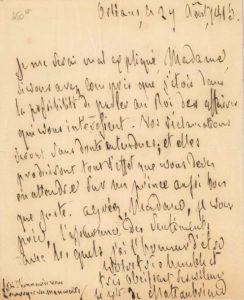 Orléans, ce 29 Août, 1815.
je me serai mal expliqué Madame,
si vous avez compris que j'étois dans
la possibilité de parler au Roi des affaires
qui vous intéressent. Vos réclamations
seront sans doute entendues, et elles
produiront tout l'effet que vous devez
en attendre sur un prince aussi bon
que juste. agréez Madame, je vous
prie, l'assurance des sentiments
avec lesquels j'ai l'honneur d'être
votre très humble et
très obéissant serviteur
le vte de Chateaubriand